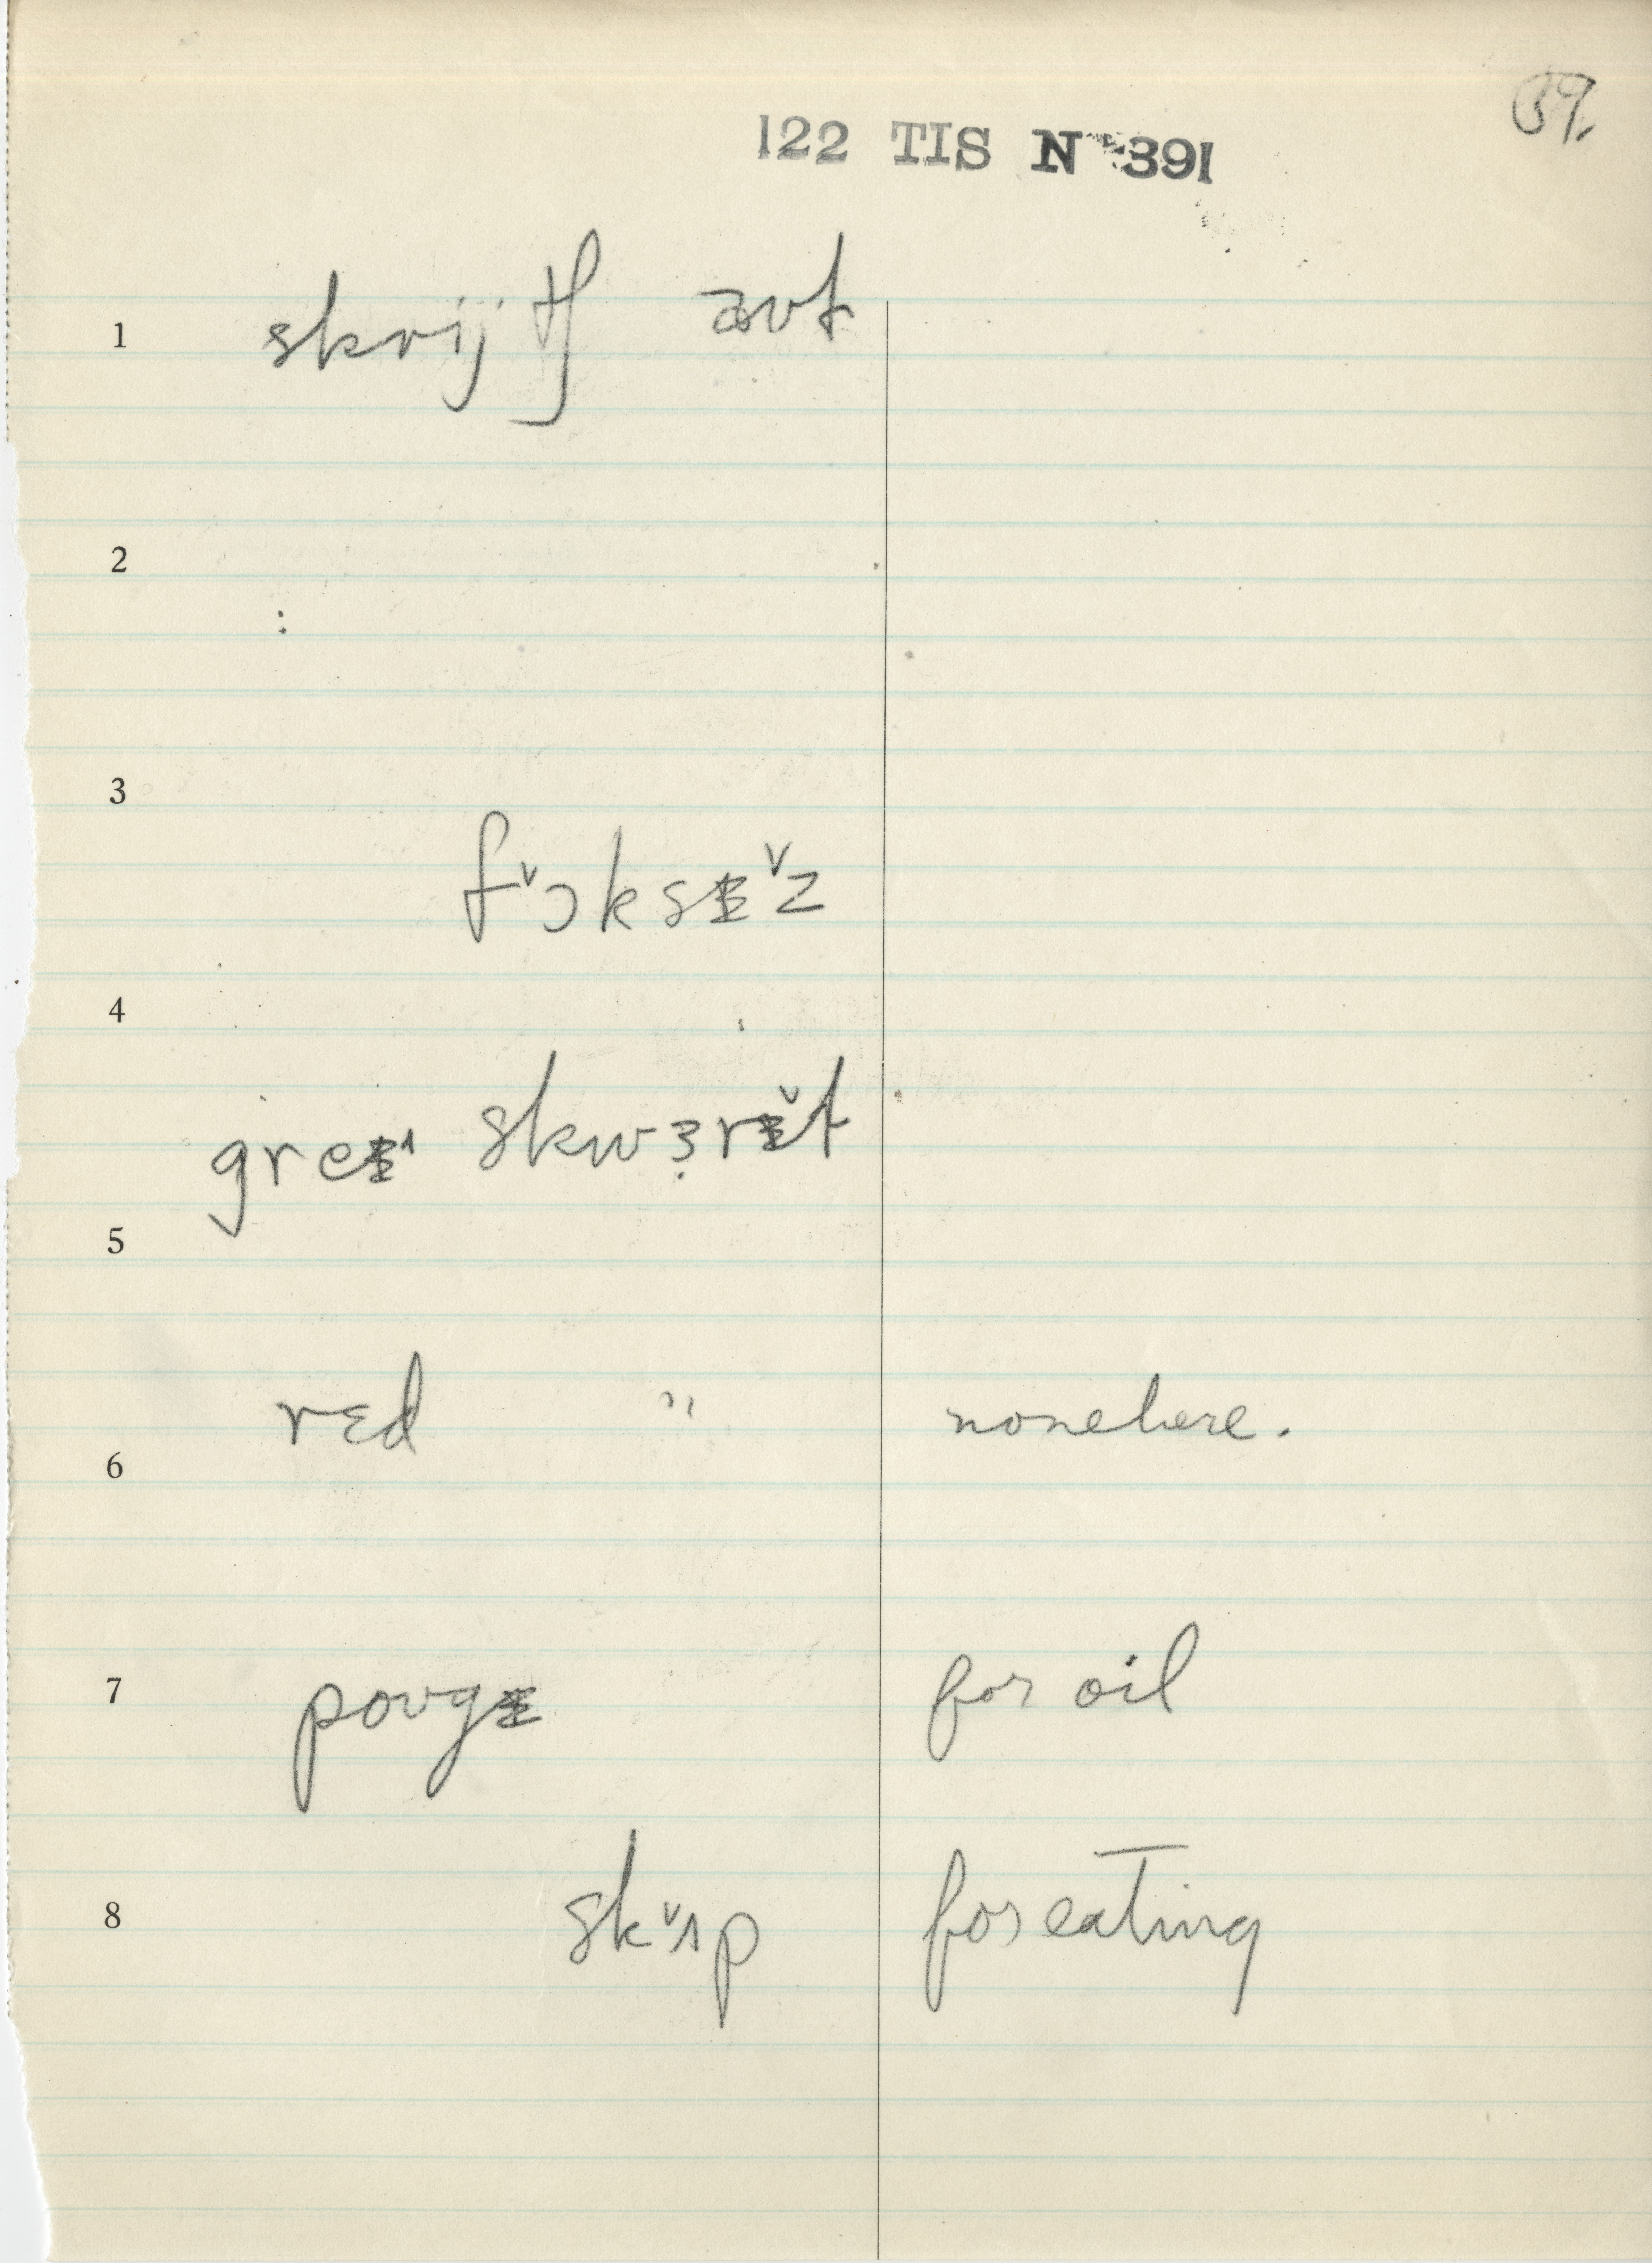 39.
122 TIS Nº 391
1 skrijtʃ aʊt
2
3
fˇɔksɪˇz
4
greɪ^ skwɜ̣rɪˇt
5
red " none here.
6
7 poʊgɪ for oil
8 skˇʌp for eating